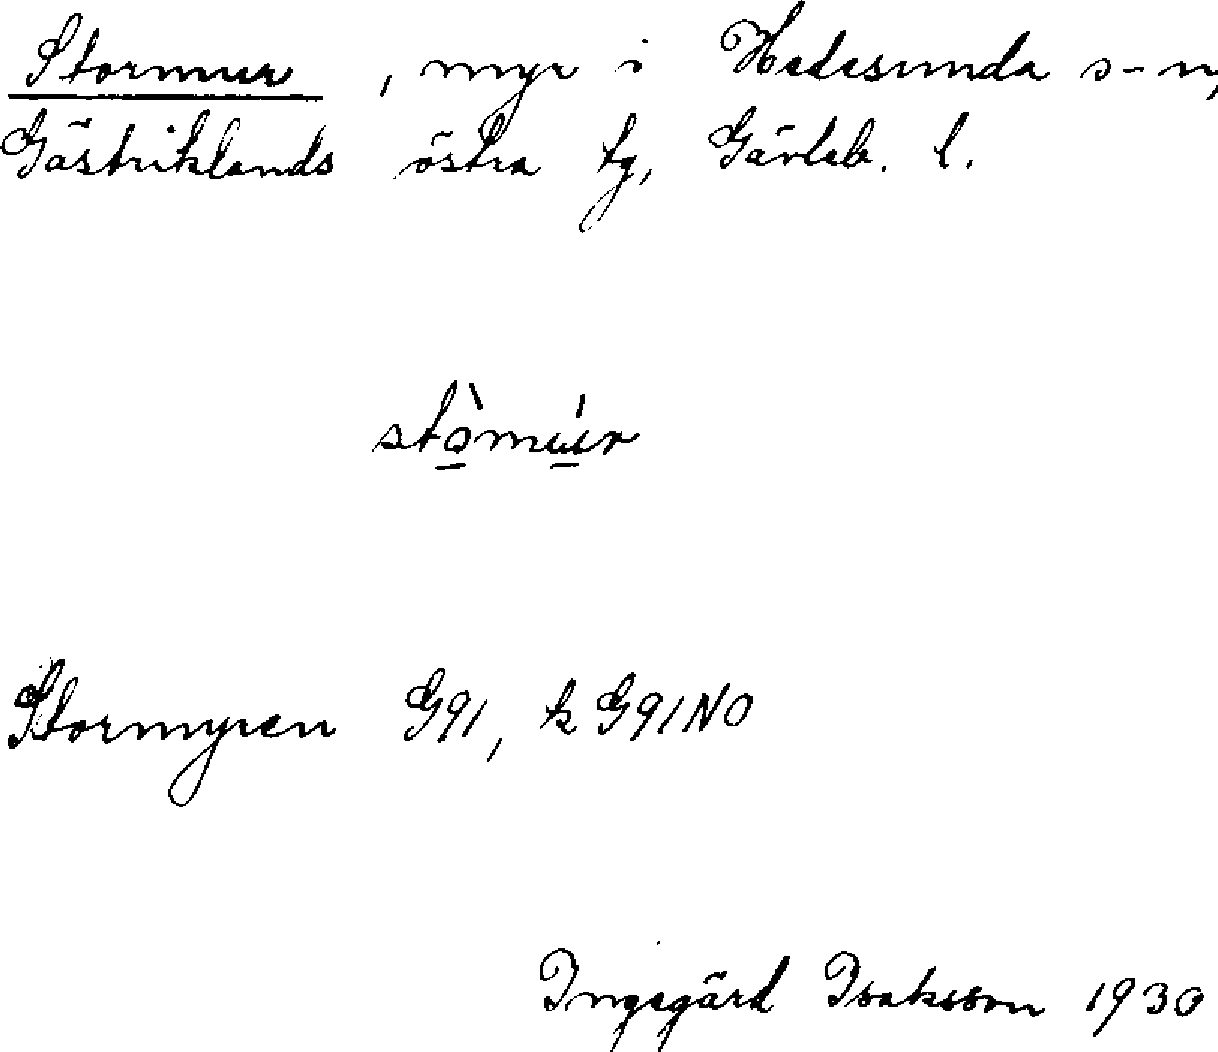 Stormur, myr i Hedesunda s-n,
Gästriklands östra tg, Gävleb. l.
stòmúr
Stormyren G91, k G91NO
Ingegärd Isaksson 1930